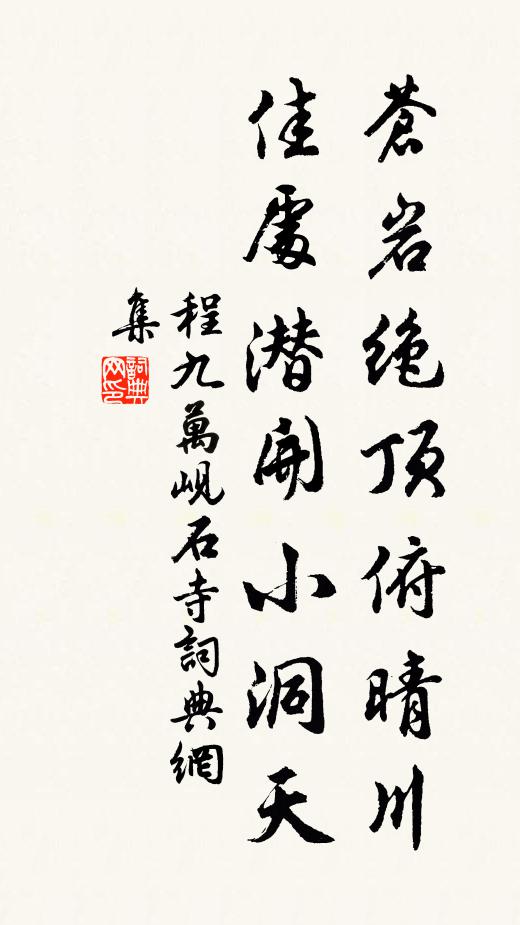 蒼岩绝顶俯晴川
佳處潜開小洞天
程九萬峴石寺詞典網
集
詞典
网印